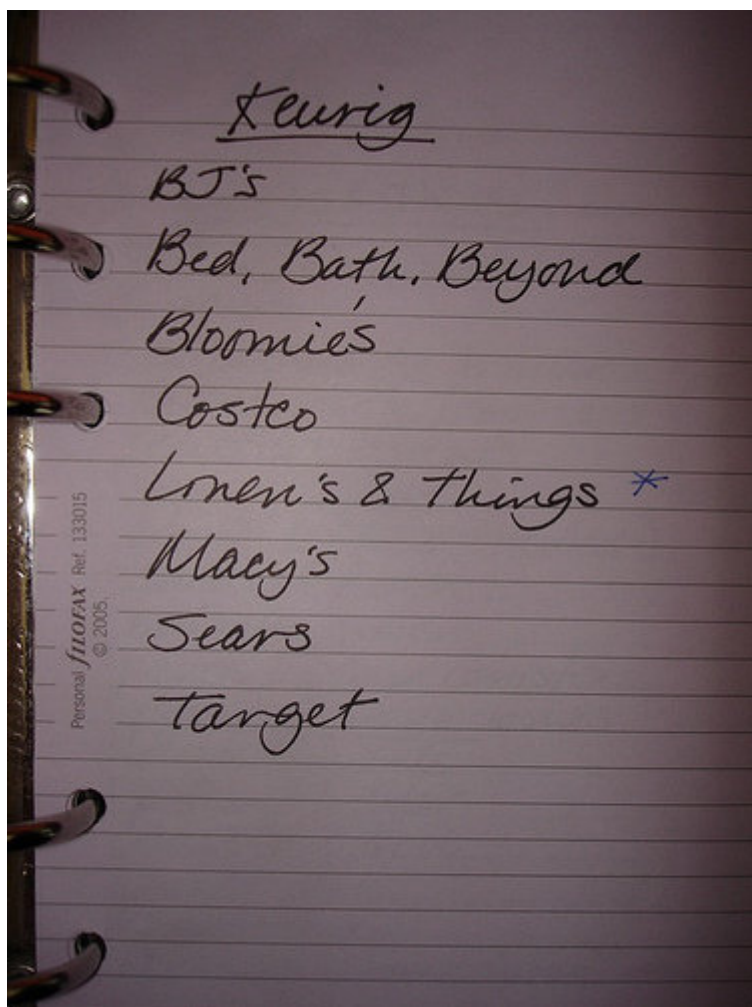 Keurig
BJ's
Bed, Bath, Beyond
Bloomie's
Costco
Linen's & Things *
Macy's
Sears
Target
Personal FILOFAX Ref. 133015
© 2005.